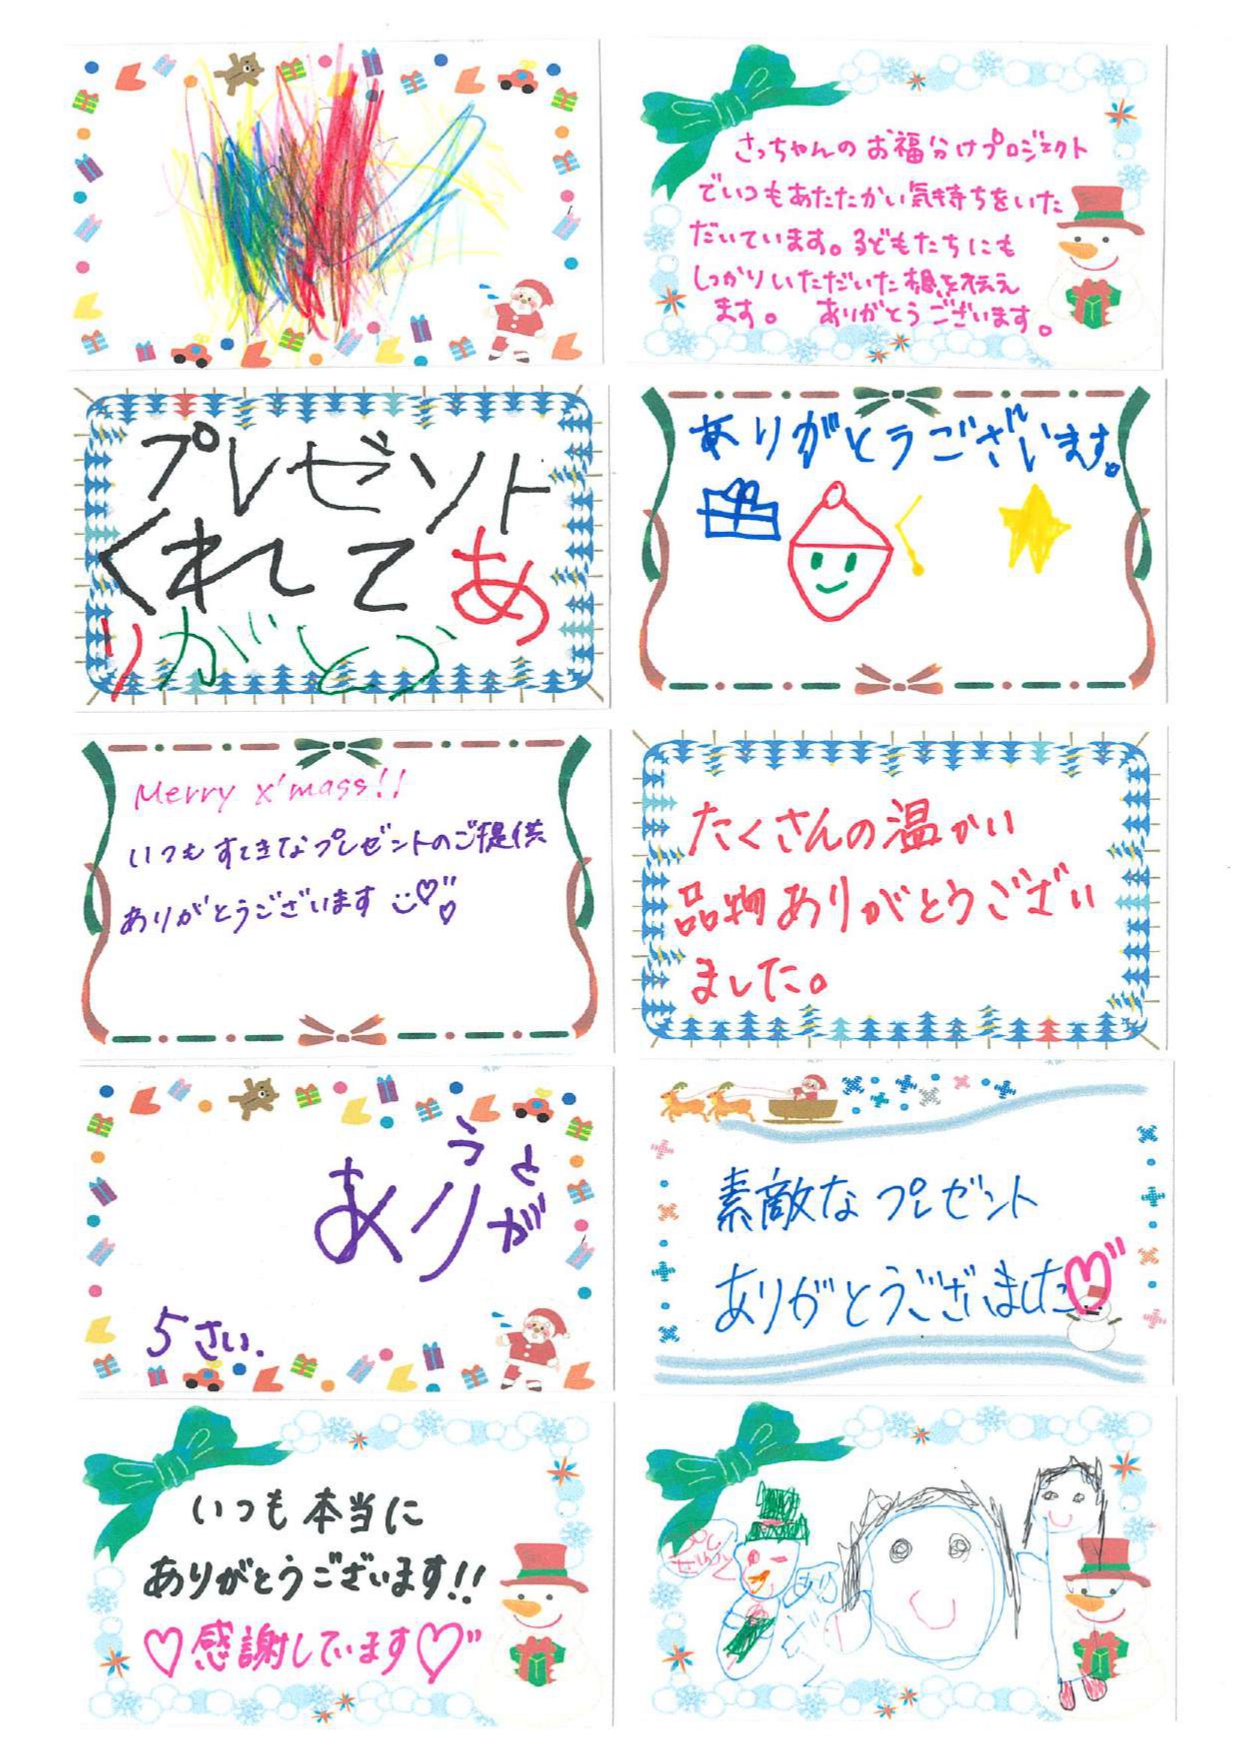 さっちゃんのお福分けプロジェクト
でいつもあたたかい気持ちをいた
だいています。子どもたちにも
しっかりいただいた想を伝え
ます。 ありがとうございます。
プレゼント
くれてあ
りがとう
ありがとうございます。
Merry X'mass!!
いつもすてきなプレゼントのご提供
ありがとうございます
たくさんの温かい
品物ありがとうござい
ました。
ありがとう
5さい.
素敵なプレゼント
ありがとうございました
いつも本当に
ありがとうございます!!
感謝しています